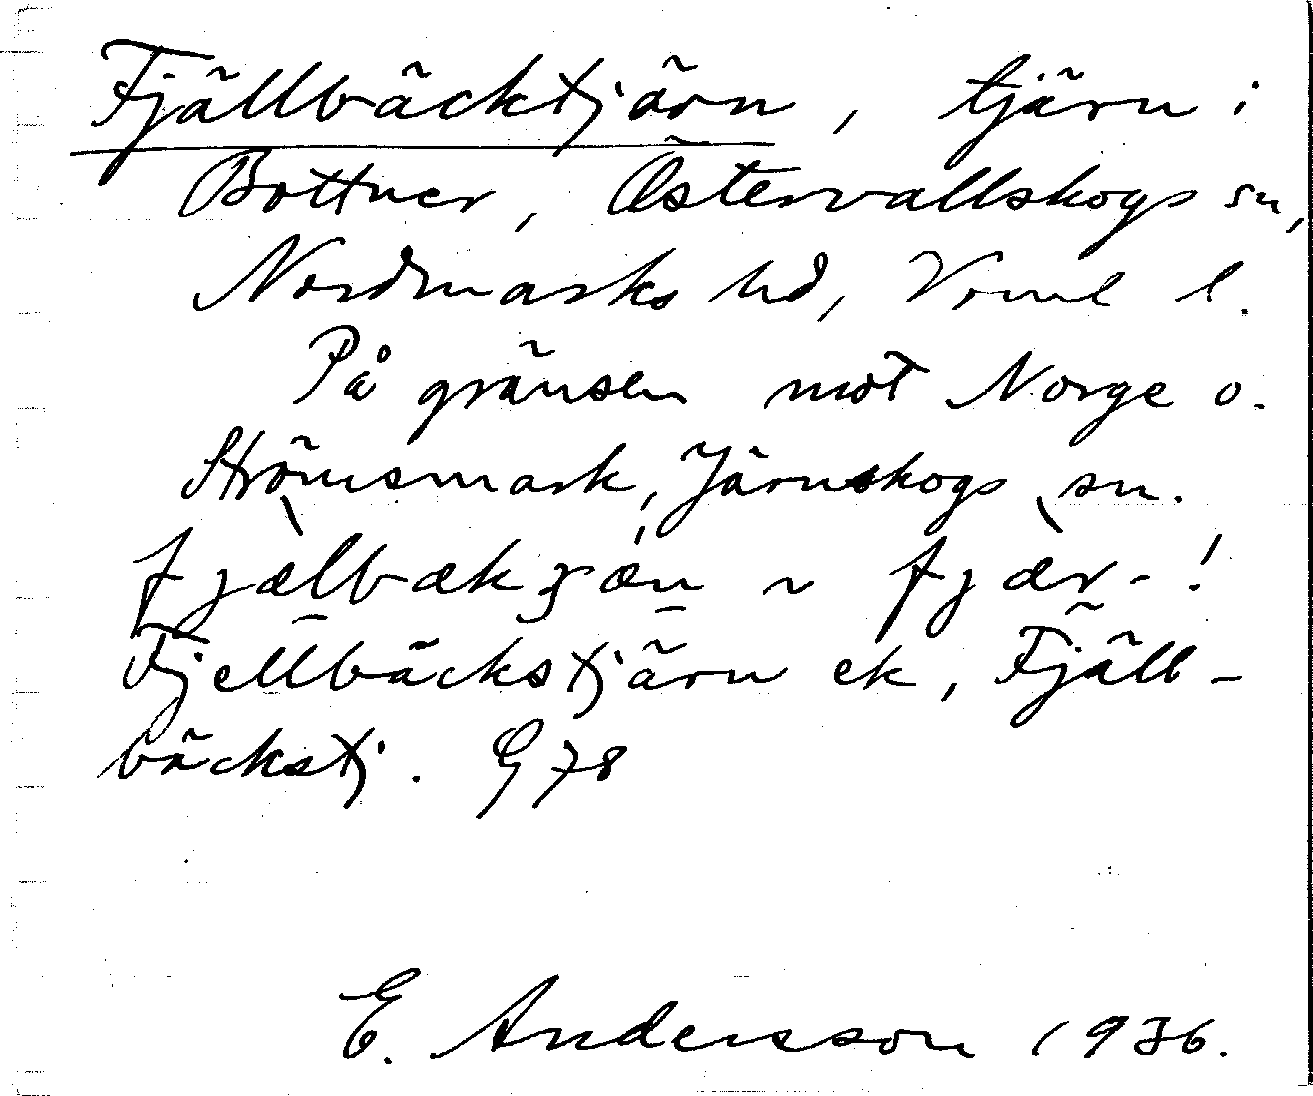 Fjällbäcktjärn, tjärn i
Bottner, Östervallskogs sn,
Nordmarks hd, Vrml l.
På gränsen mot Norge o.
Strömsmark, Järnskogs sn.
fjælbækʒæn ~ fjær-!
Fjellbäckstjärn ek, Fjäll-
bäckstj. G 78
E. Andersson 1936.